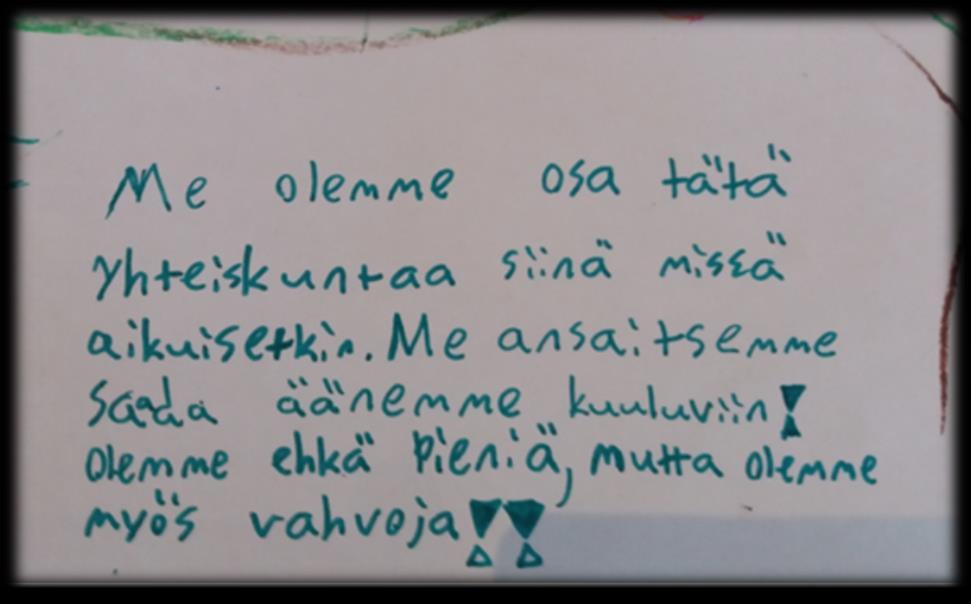 Me olemme osa tätä
yhteiskuntaa siinä missä
aikuisetkin. Me ansaitsemme
saada äänemme kuuluviin!
Olemme ehkä pieniä, mutta olemme
myös vahvoja!!